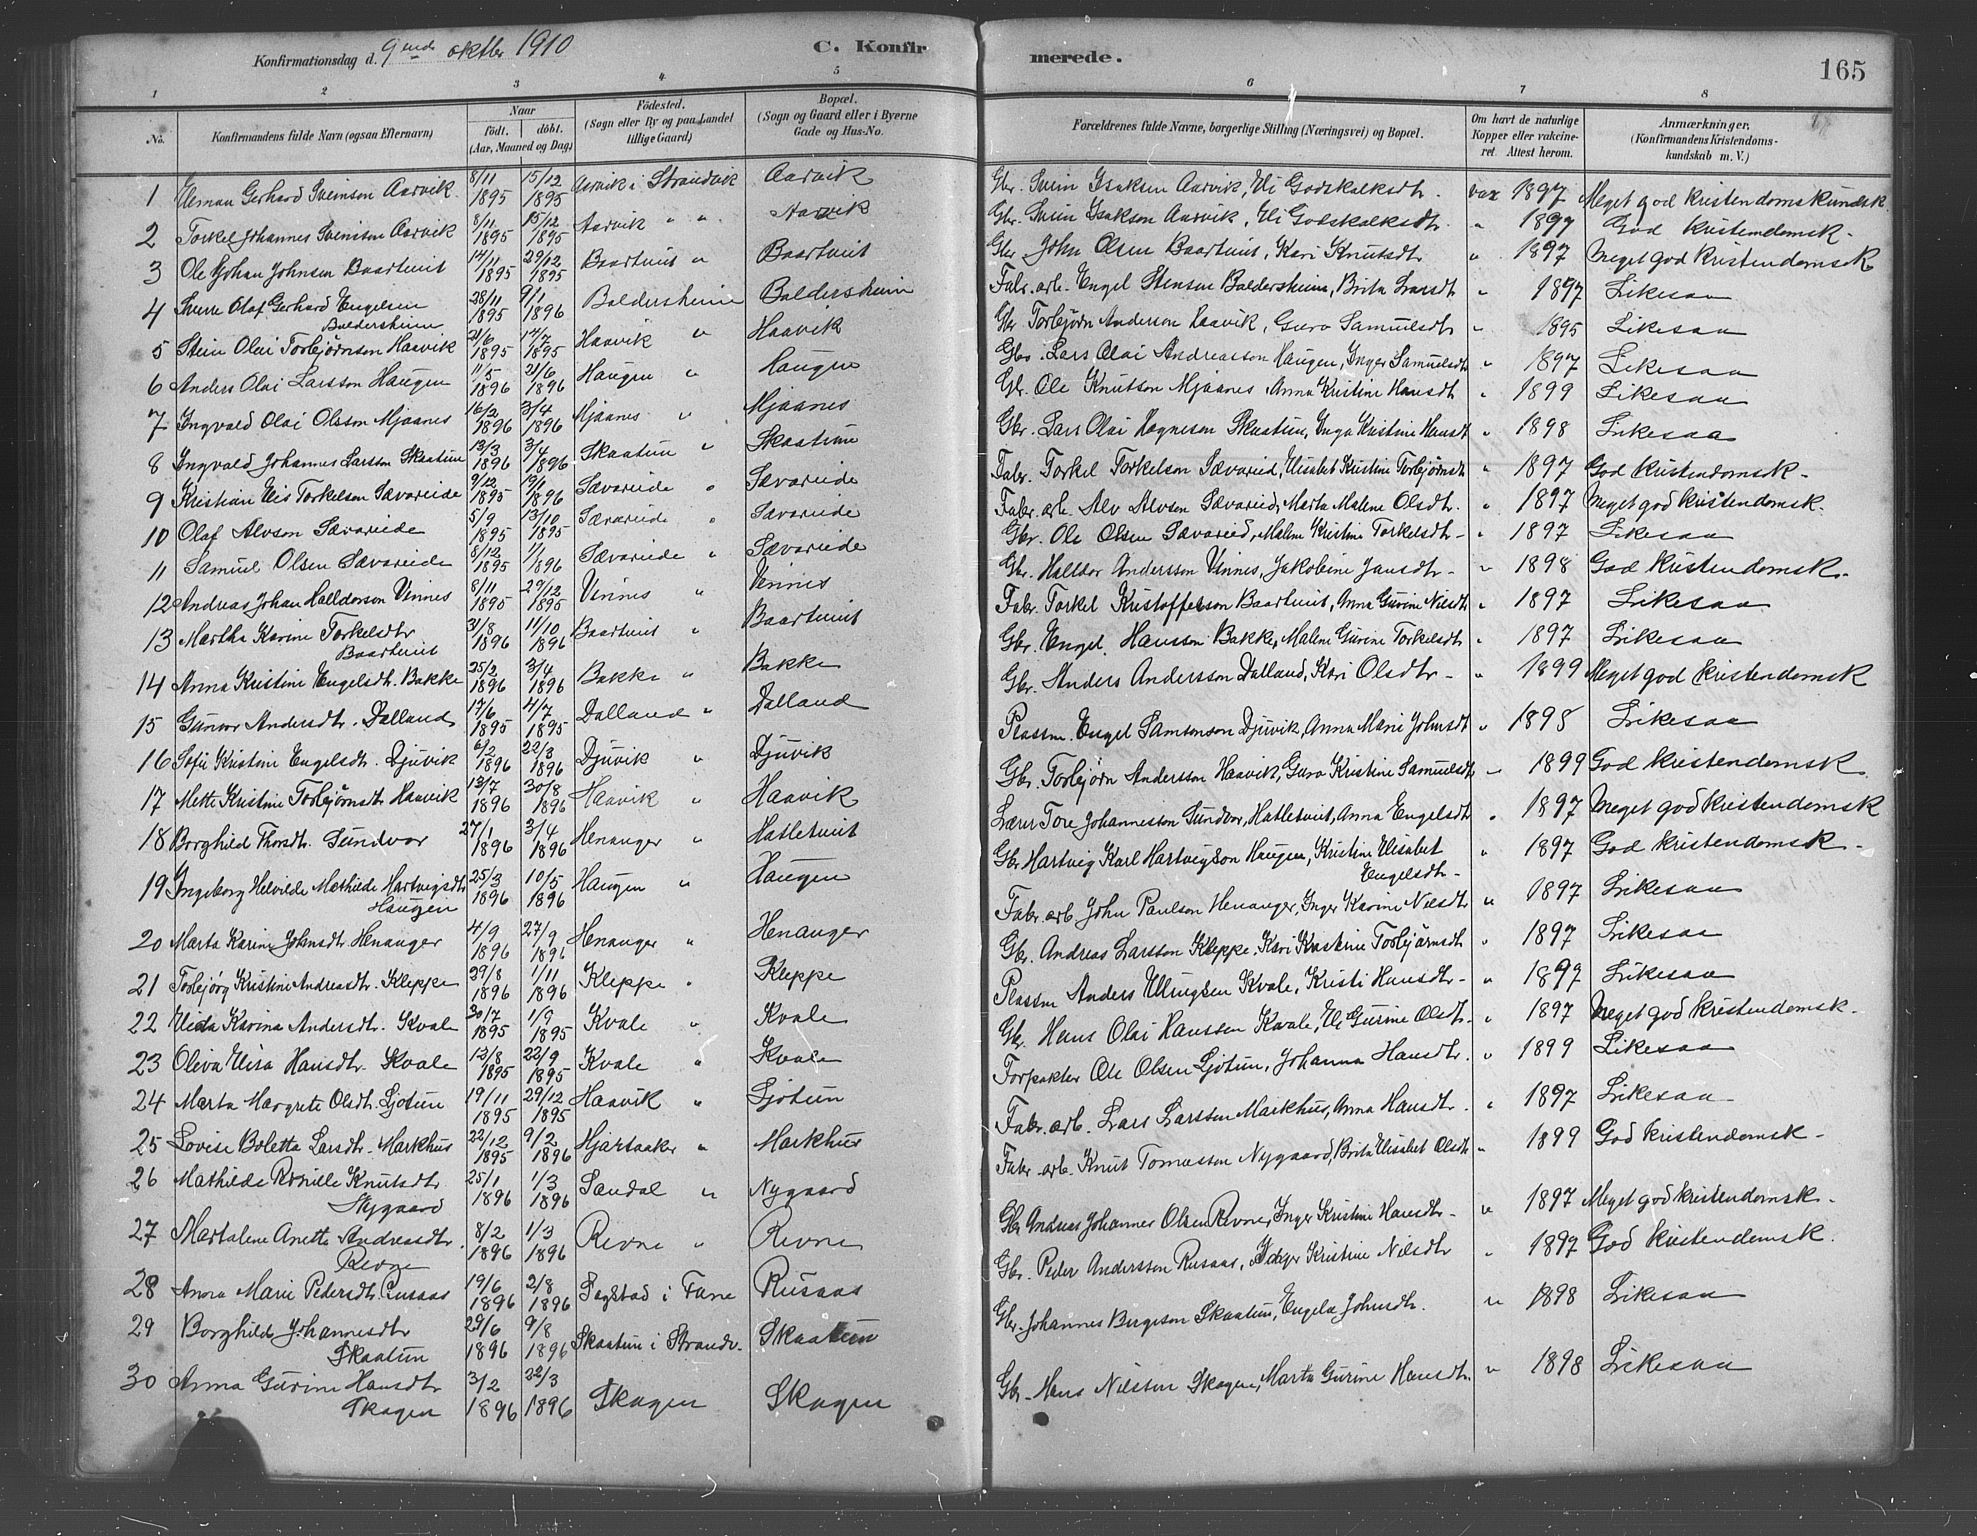 Konfirmationsdag d. 9nde oktbr 1910
C. Konfirmerede.
165
1 2 3 4 5 6 7 8
No.
Konfirmandens fulde Navn (ogsaa Efternavn)
Naar
født. døbt.
(Aar, Maaned og Dag)
Fødested.
(Sogn eller By og paa Landet
tillige Gaard.)
Bopæl.
(Sogn og Gaard eller i Byerne
Gade og Hus-No.
Forældrenes fulde Navne, borgerlige Stilling (Næringsvei) og Bopæl.
Om havt de naturlige
Kopper eller vakcine-
ret. Attest herom.
Anmærkninger.
(Konfirmandens Kristendoms-
kundskab m. V.)
1 Gerhard Sveinson Aarvik 8/11 1895 15/12 1895 Aarvik i Strandvik Aarvik Gbr. Svein Isaksen Aarvik, Eli Godskalksdtr. vax 1897 Meget god kristendomskundsk.
2 Torkel Johannes Sveinson Aarvik 8/11 1895 15/12 1895 Aarvik " " Aarvik Gbr. Svein Isakson Aarvik, Eli Godskalksdtr. " 1897 God kristendomsk.
3 Ole Johan Johnsen Baartveit 14/11 1895 29/12 1895 Baartveit " Baartveit Gbr. John Olsen Baartveit, Kari Knutsdtr " 1897 Meget god kristendomsk
4 Sverre Olaf Gerhard Engelsen Baldersheim 28/11 1895 9/1 1896 Baldersheim Baldersheim Fabr. arb. Engel Stenson Baldersheim, Brita Larsdtr " 1897 Likesaa
5 Stein Olai Torbjørnson Haavik 21/6 1895 14/7 1895 Haavik " Haavik Gbr. Torbjørn Anderson Haavik, Guro Samuelsdtr " 1895 Likesaa
6 Anders Olai Larsson Haugen 11/5 1896 21/6 1896 Haugen " Haugen Gbr. Lars Olai Andreasson Haugen, Inger Samuelsdtr " 1897 Likesaa
7 Ingvald Olai Olsson Mjaanes 16/2 1896 3/4 1896 Mjaanes " Mjaanes Gbr. Ole Knutson Mjaanes, Anna Kristine Hansdtr " 1899 Likesaa
8 Ingvald Johannes Larsson Skaatun 13/3 1896 3/4 1896 Skaatun " Skaatun Gbr. Lars Olai Hogneson Skaatun, Inga Kristine Hansdt " 1898 Likesaa
9 Kristian Elis Torkelson Sævareide 9/12 1895 19/1 1896 Sævareide " Sævareide Fabr. Torkel Torkelson Sævareid, Elisabet Kristine Torbjørnsdt " 1897 God kristendomsk.
10 Olaf Alvson Sævareide 5/9 1895 13/10 1895 Sævareide " Sævareide Fabr. arb. Alv Alvson Sævareid, Marta Malene Olsdtr. " 1897 Meget god kristendomsk.
11 Samuel Olsen Sævareide 8/12 1895 1/1 1896 Sævareide " Sævareide Gbr. Ole Olsen Sævareid, Malene Kristine Torkelsdtr " 1897 Likesaa
12 Andreas Johan Halldorson Vinnes 8/11 1895 29/12 1895 Vinnes " Vinnes Gbr. Halldor Andersson Vinnes, Jakobine Jansdtr " 1898 God kristendomsk.
13 Martha Karine Torkelsdtr Baartveit 31/8 1896 11/10 1896 Baartveit " Baartveit Fabr. Torkel Kristofferson Baartveit, Anna Gurine Nilsdtr " 1897 Likesaa
14 Anna Kristine Engelsdtr. Bakke 25/2 1896 3/4 1896 Bakke " Bakke Gbr. Engel Hansson Bakke, Malene Gurine Torkelsdtr " 1897 Likesaa
15 Gunvor Andersdtr. Dalland 17/6 1895 4/7 1895 Dalland " Dalland Gbr. Anders Andersson Dalland, Kari Olsdtr " 1899 Meget god kristendomsk
16 Sofie Kristine Engelsdtr. Djuvik 6/2 1896 22/3 1896 Djuvik " Djuvik Plassm. Engel Samsonson Djuvik, Anna Marie Johnsdt " 1898 Likesaa
17 Mette Kristine Torbjørnsdt Haavik 13/7 1896 30/8 1896 Haavik " Haavik Gbr. Torbjørn Andersson Haavik, Guro Kristine Samuelsdt " 1899 God kristendomsk
18 Borghild Thorsdt. Sundvor 27/1 1896 3/4 1896 Henanger " Hatletveit Lærer Tore Johanneson Sundvor, Hatletveit, Anna Engelsdt " 1897 Meget god kristendomsk
19 Ingeborg Helvilde Mathilde Hartvigsdtr Haugen 25/3 1896 10/5 1896 Haugen " Haugen Gbr. Hartvig Karl Hartvigson Haugen, Kristine Elisabet Engelsdtr " 1897 God kristendomsk
20 Marta Karine Johnsdt. Henanger 4/9 1896 27/9 1896 Henanger " Henanger Fabr. arb. John Paulson Henanger, Inger Karine Nilsdtr " 1897 Likesaa
21 Torbjørg Kristine Andreasdtr. Kleppe 29/8 1896 1/11 1896 Kleppe " Kleppe Gbr. Andreas Larsson Kleppe, Kari Kristine Torbjørnsdt " 1897 Likesaa
22 Karina Andersdt. Kvale 30/7 1895 1/9 1895 Kvale " Kvale Plassm Anders Ellingsen Kvale, Kristi Hansdtr " 1897 Likesaa
23 Oliva Elisa Hansdtr. Kvale 13/8 1895 22/9 1895 Kvale " Kvale Gbr. Hans Olai Hansson Kvale, Eli Gurine Olsdt. " 1897 Meget god kristendomsk.
24 Marta Margrete Olsdt. Ljotun 19/11 1895 29/12 1895 Haavik " Ljotun Forpakter Ole Olsen Ljotun, Johanna Hansdtr. " 1899 Likesaa
25 Lovise Boletta Larsdt. Markhus 22/12 1895 9/2 1896 Hjartaaker " Markhus Fabr. arb. Lars Larsson Markhus, Anna Hansdtr. " 1897 Likesaa
26 Mathilde Knutsdtr Nygaard 25/1 1896 1/3 1896 Sandal " Nygaard Fabr. arb. Knut Tomasson Nygaard, Brita Elisabet Olsdt " 1899 God kristendomsk.
27 Martalene Anette Andreasdtr. Revne 8/2 1896 1/3 1896 Revne " Revne Gbr. Andreas Johannes Olsen Revne, Inger Kristine Hansdtr. " 1897 Meget god kristendomsk.
28 Anna Marie Pedersdt. Rusaas 19/6 1896 2/8 1896 Søgstad i Fane Rusaas Gbr. Peder Andersson Rusaas, Inger Kristine Nilsdtr " 1897 God kristendomsk.
29 Borghild Johannesdtr Skaatun 29/6 1896 9/8 1896 Skaatun i Strandv. Skaatun Gbr. Johannes Skaatun, Engela Johnsdtr. " 1898 Likesaa
30 Anna Gurine Hansdtr Skogen 3/2 1896 22/3 1896 Skogen Skogen Gbr. Hans Nilsson Skogen, Marta Gurine Hansdtr. " 1898 Likesaa